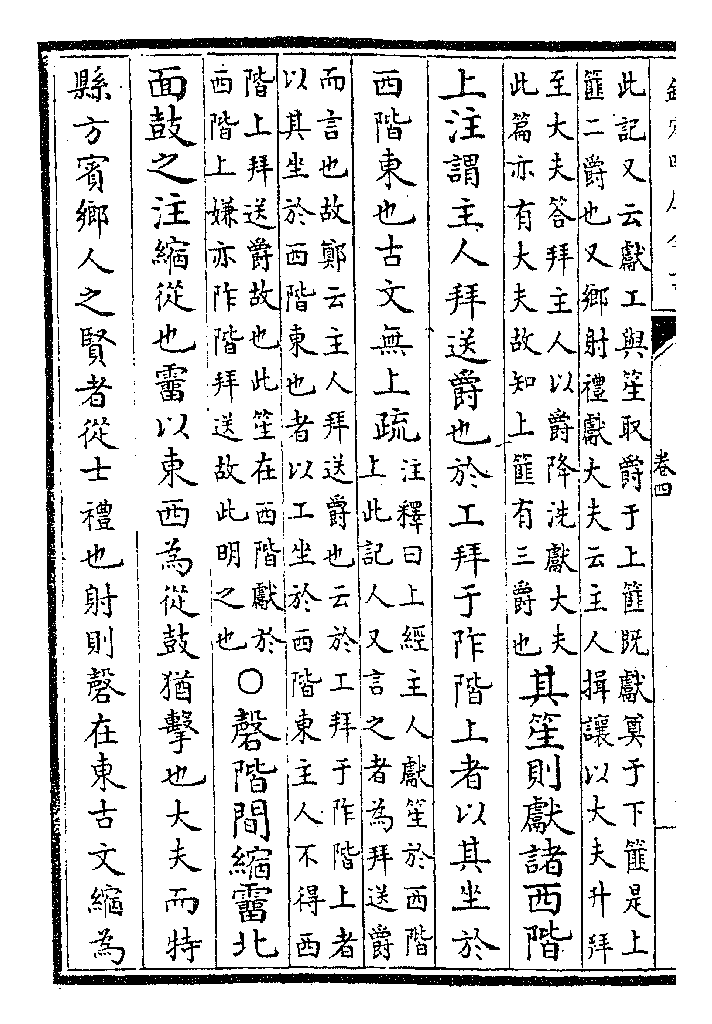 卷四
此記又云獻工與笙取爵于上篚既獻奠于下篚是上
篚二爵也又鄉射禮獻大夫云主人揖讓以大夫升拜
至大夫答拜主人以爵降洗獻大夫
此篇亦有大夫故知上篚有三爵也
其笙則獻諸西階
上注謂主人拜送爵也於工拜于阼階上者以其坐於
西階東也古文無上疏
注釋曰上經主人獻笙於西階
上此記人又言之者為拜送爵
而言也故鄭云主人拜送爵也云於工拜于阼階上者
以其坐於西階東也者以工坐於西階東主人不得西
階上拜送爵故也此笙在西階獻於
西階上嫌亦阼階拜送故此明之也
○磬階間縮霤北
面鼓之注縮從也霤以東西為從鼓猶擊也大夫而特
縣方賓鄉人之賢者從士禮也射則磬在東古文縮為